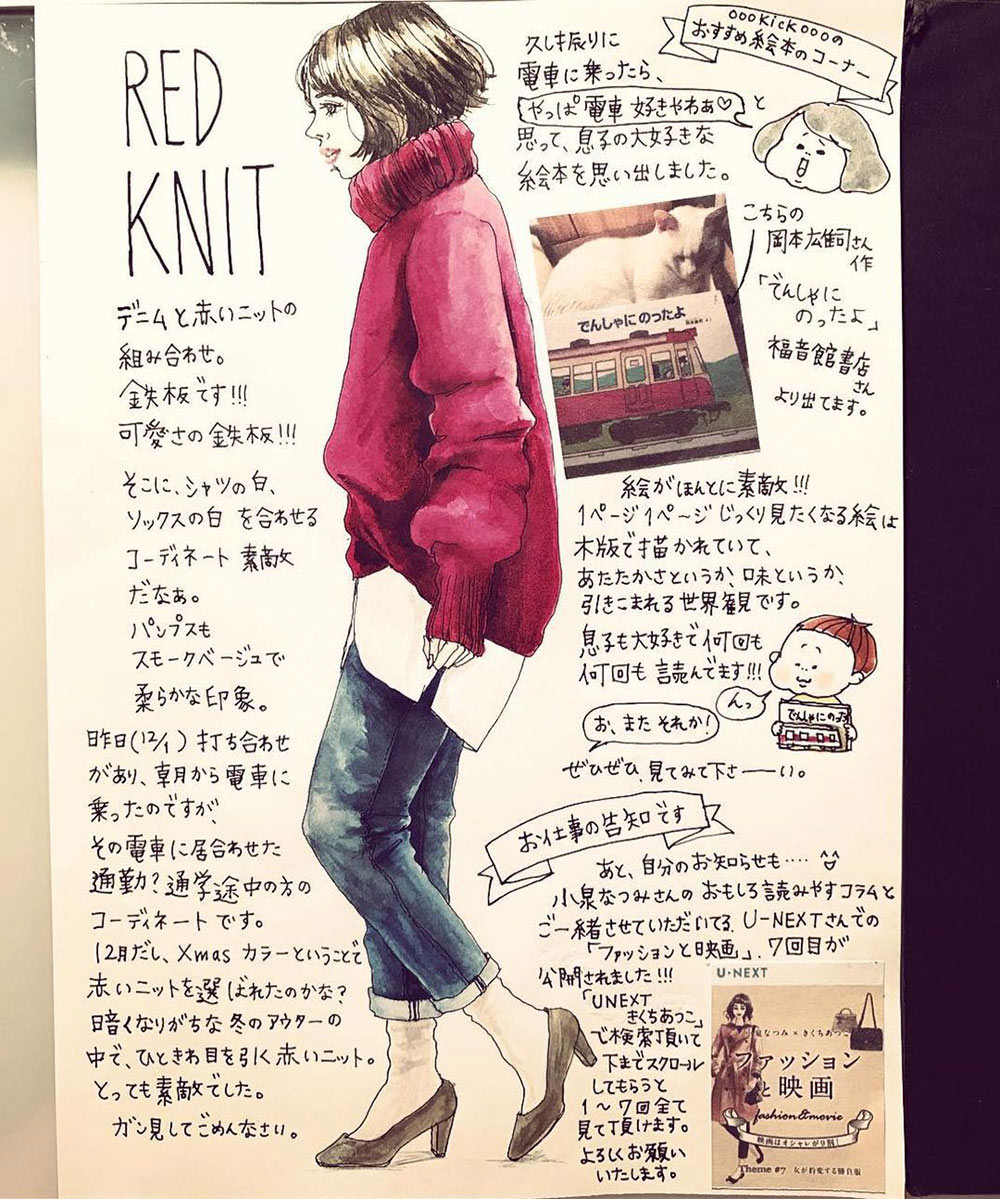 RED
KNIT
デニムと赤いニットの
組み合わせ。
鉄板です!!!
可愛さの鉄板!!!
そこに、シャツの白、
ソックスの白 を合わせる
コーディネート 素敵
だなぁ。
パンプスも
スモークベージュで
柔らかな印象。
昨日(12/1) 打ち合わせ
があり、朝から電車に
乗ったのですが、
その電車に居合わせた
通勤?通学途中の方の
コーディネートです。
12月だし、Xmas カラーということで
赤いニットを選ばれたのかな?
暗くなりがちな冬のアウターの
中で、ひときわ目を引く赤いニット。
とっても素敵でした。
ガン見してごめんなさい。
oookickoooの
おすすめ絵本のコーナー
久しぶ振りに
電車に乗ったら、
やっぱ電車好きやわぁ♡と
思って、息子の大好きな
絵本を思い出しました。
こちらの
岡本広飼さん
作
「でんしゃに
のったよ」
福音館書店
さん
より出てます。
でんしゃに のったよ
絵がほんとに素敵!!!
1ページ1ページじっくり見たくなる絵は
木版で描かれていて、
あたたかさというか、味というか、
引きこまれる世界観です。
息子も大好きで何回も
何回も読んでます!!!
んっ
でんしゃにのったよ
お、またそれか!
ぜひぜひ、見てみて下さーーい。
お仕事の告知です
あと、自分のお知らせも‥‥
小泉なつみさんのおもしろ読みやすコラムと
ご一緒させていただいてる、U-NEXTさんでの
「ファッションと映画」、7回目が
公開されました!!!
「UNEXT
きくちあつこ」
で検索頂いて
下までスクロール
してもらうと
1〜7回全て
見て頂けます。
よろしくお願い
いたします。
U-NEXT
泉なつみ×きくちあつこ
ファッション
と映画
fashion&movie
映画はオシャレが9割!
Theme #7 女が豹変する勝負服